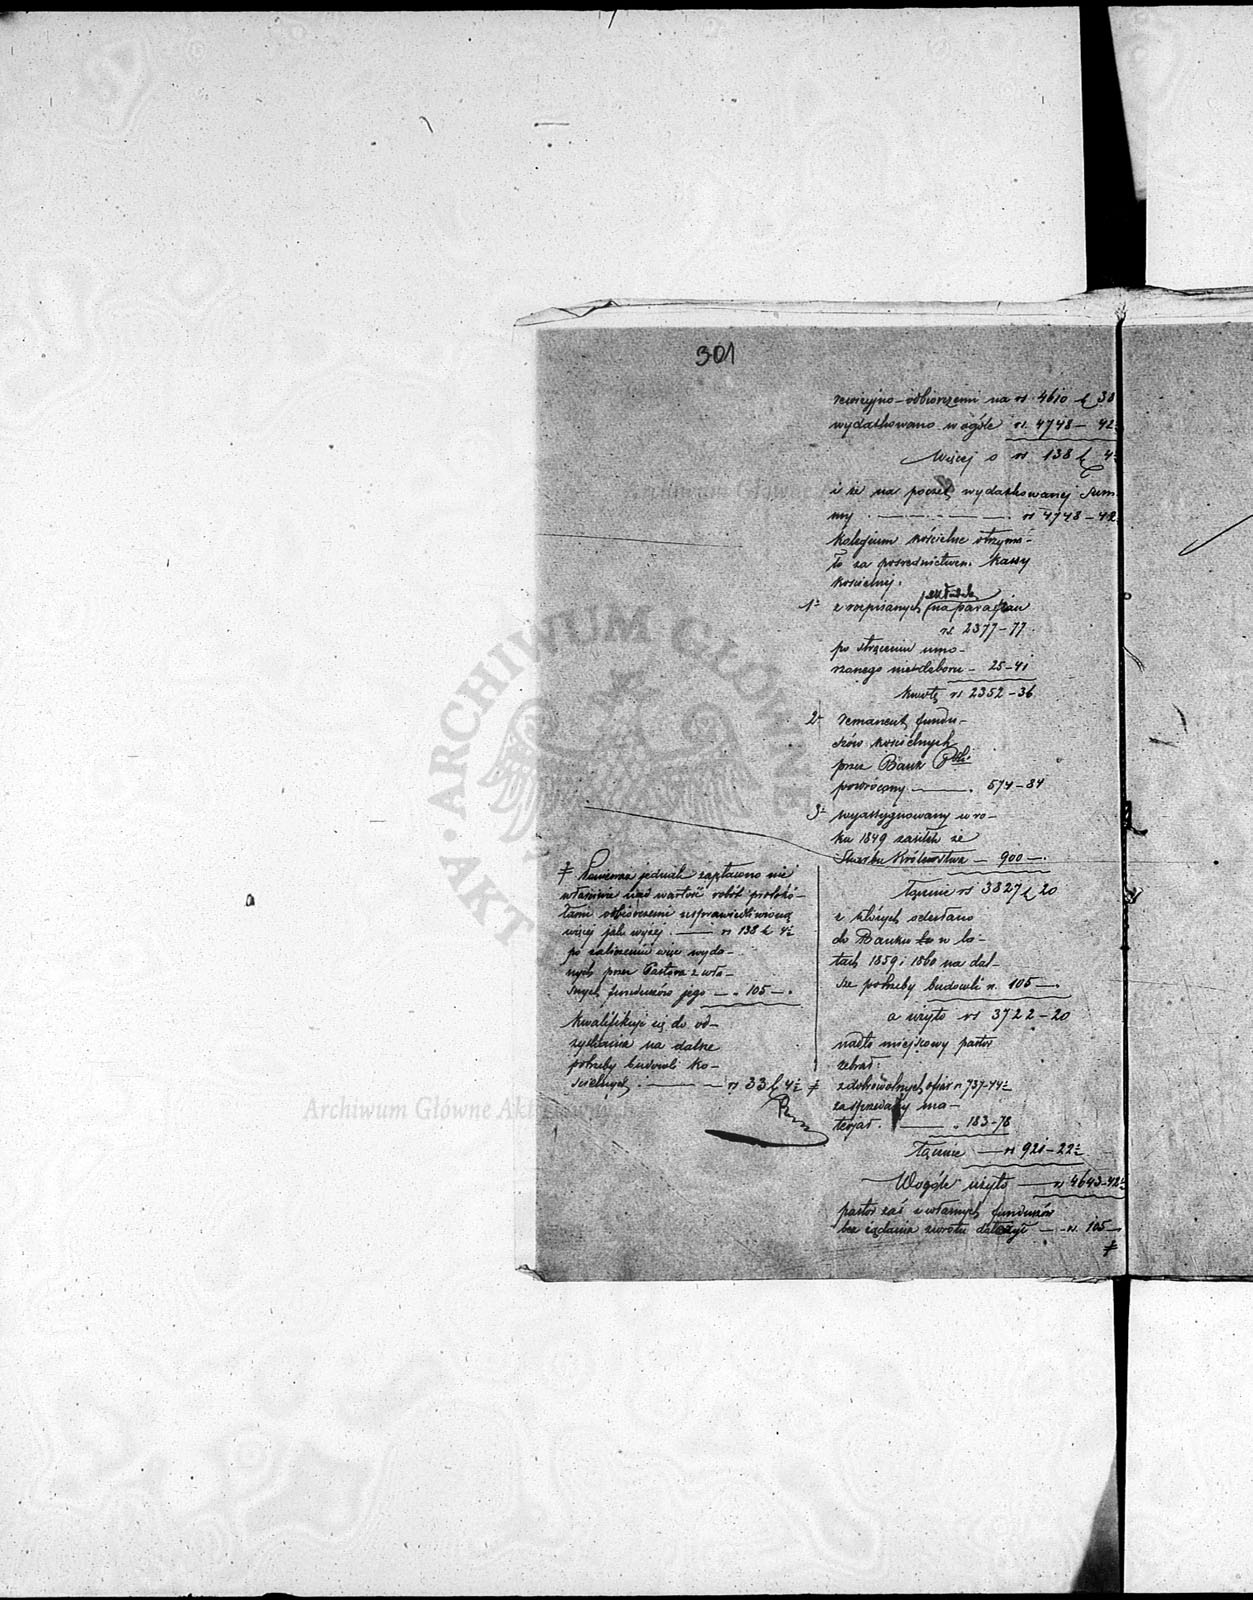 301
rewizyjno-odbiorczemi na rs 4610 k 38
wydatkowano w ogóle rs. 4748 – 42
Więcej o rs. 138 k 4
i że na poczet wydatkowanej Sum-
my . — . — . — . rs 4748 – 42
Kolegium kościelne otrzyma-
ło za pośrednictwem Kassy
Kościelnej.
1. z rozpisanych składek na parafian
rs. 2377 – 77.
po strąceniu umo-
rzonego niedoboru – 25 – 41
kwotę rs 2352 – 36
2. remanent fundu-
szów kościelnych
przez Bank Polski
powrócony — . 574 – 84
3. wyassygnowany w ro-
ku 1849 zasiłek ze
Skarbu Królestwa — 900 — .
łącznie rs 3827 k 20
z których odesłano
do Banku w la-
tach 1859 i 1860 na dal-
sze potrzeby budowli rs. 105 — .
a użyto rs 3722 – 20
nadto miejscowy pastor
zebrał:
z dobrowolnych ofiar rs 737-44
za sprzedany ma-
terjał. — . 183-78
łącznie — rs 921 – 22
Wogóle użyto — rs 4643-42
pastor zaś z własnych funduszów
bez żądania zwrotu dołożył — rs. 105 —
≠
≠ Ponieważ jednak zapłacono nie
właściwie nad wartość robót protokó-
łami odbiorczemi usprawiedliwioną
więcej jak wyżej . — rs 138 k 4
po zaliczeniu więc wyda-
nych przez Pastora z wła-
snych funduszów jego — . 105 — .
kwalifikuje się do od-
zyskania na dalsze
potrzeby budowli ko-
ścielnych . — — rs 33 k 4 ≠
ARCHIWUM GŁÓWNE AKT
Archiwum Główne Akt Dawnych